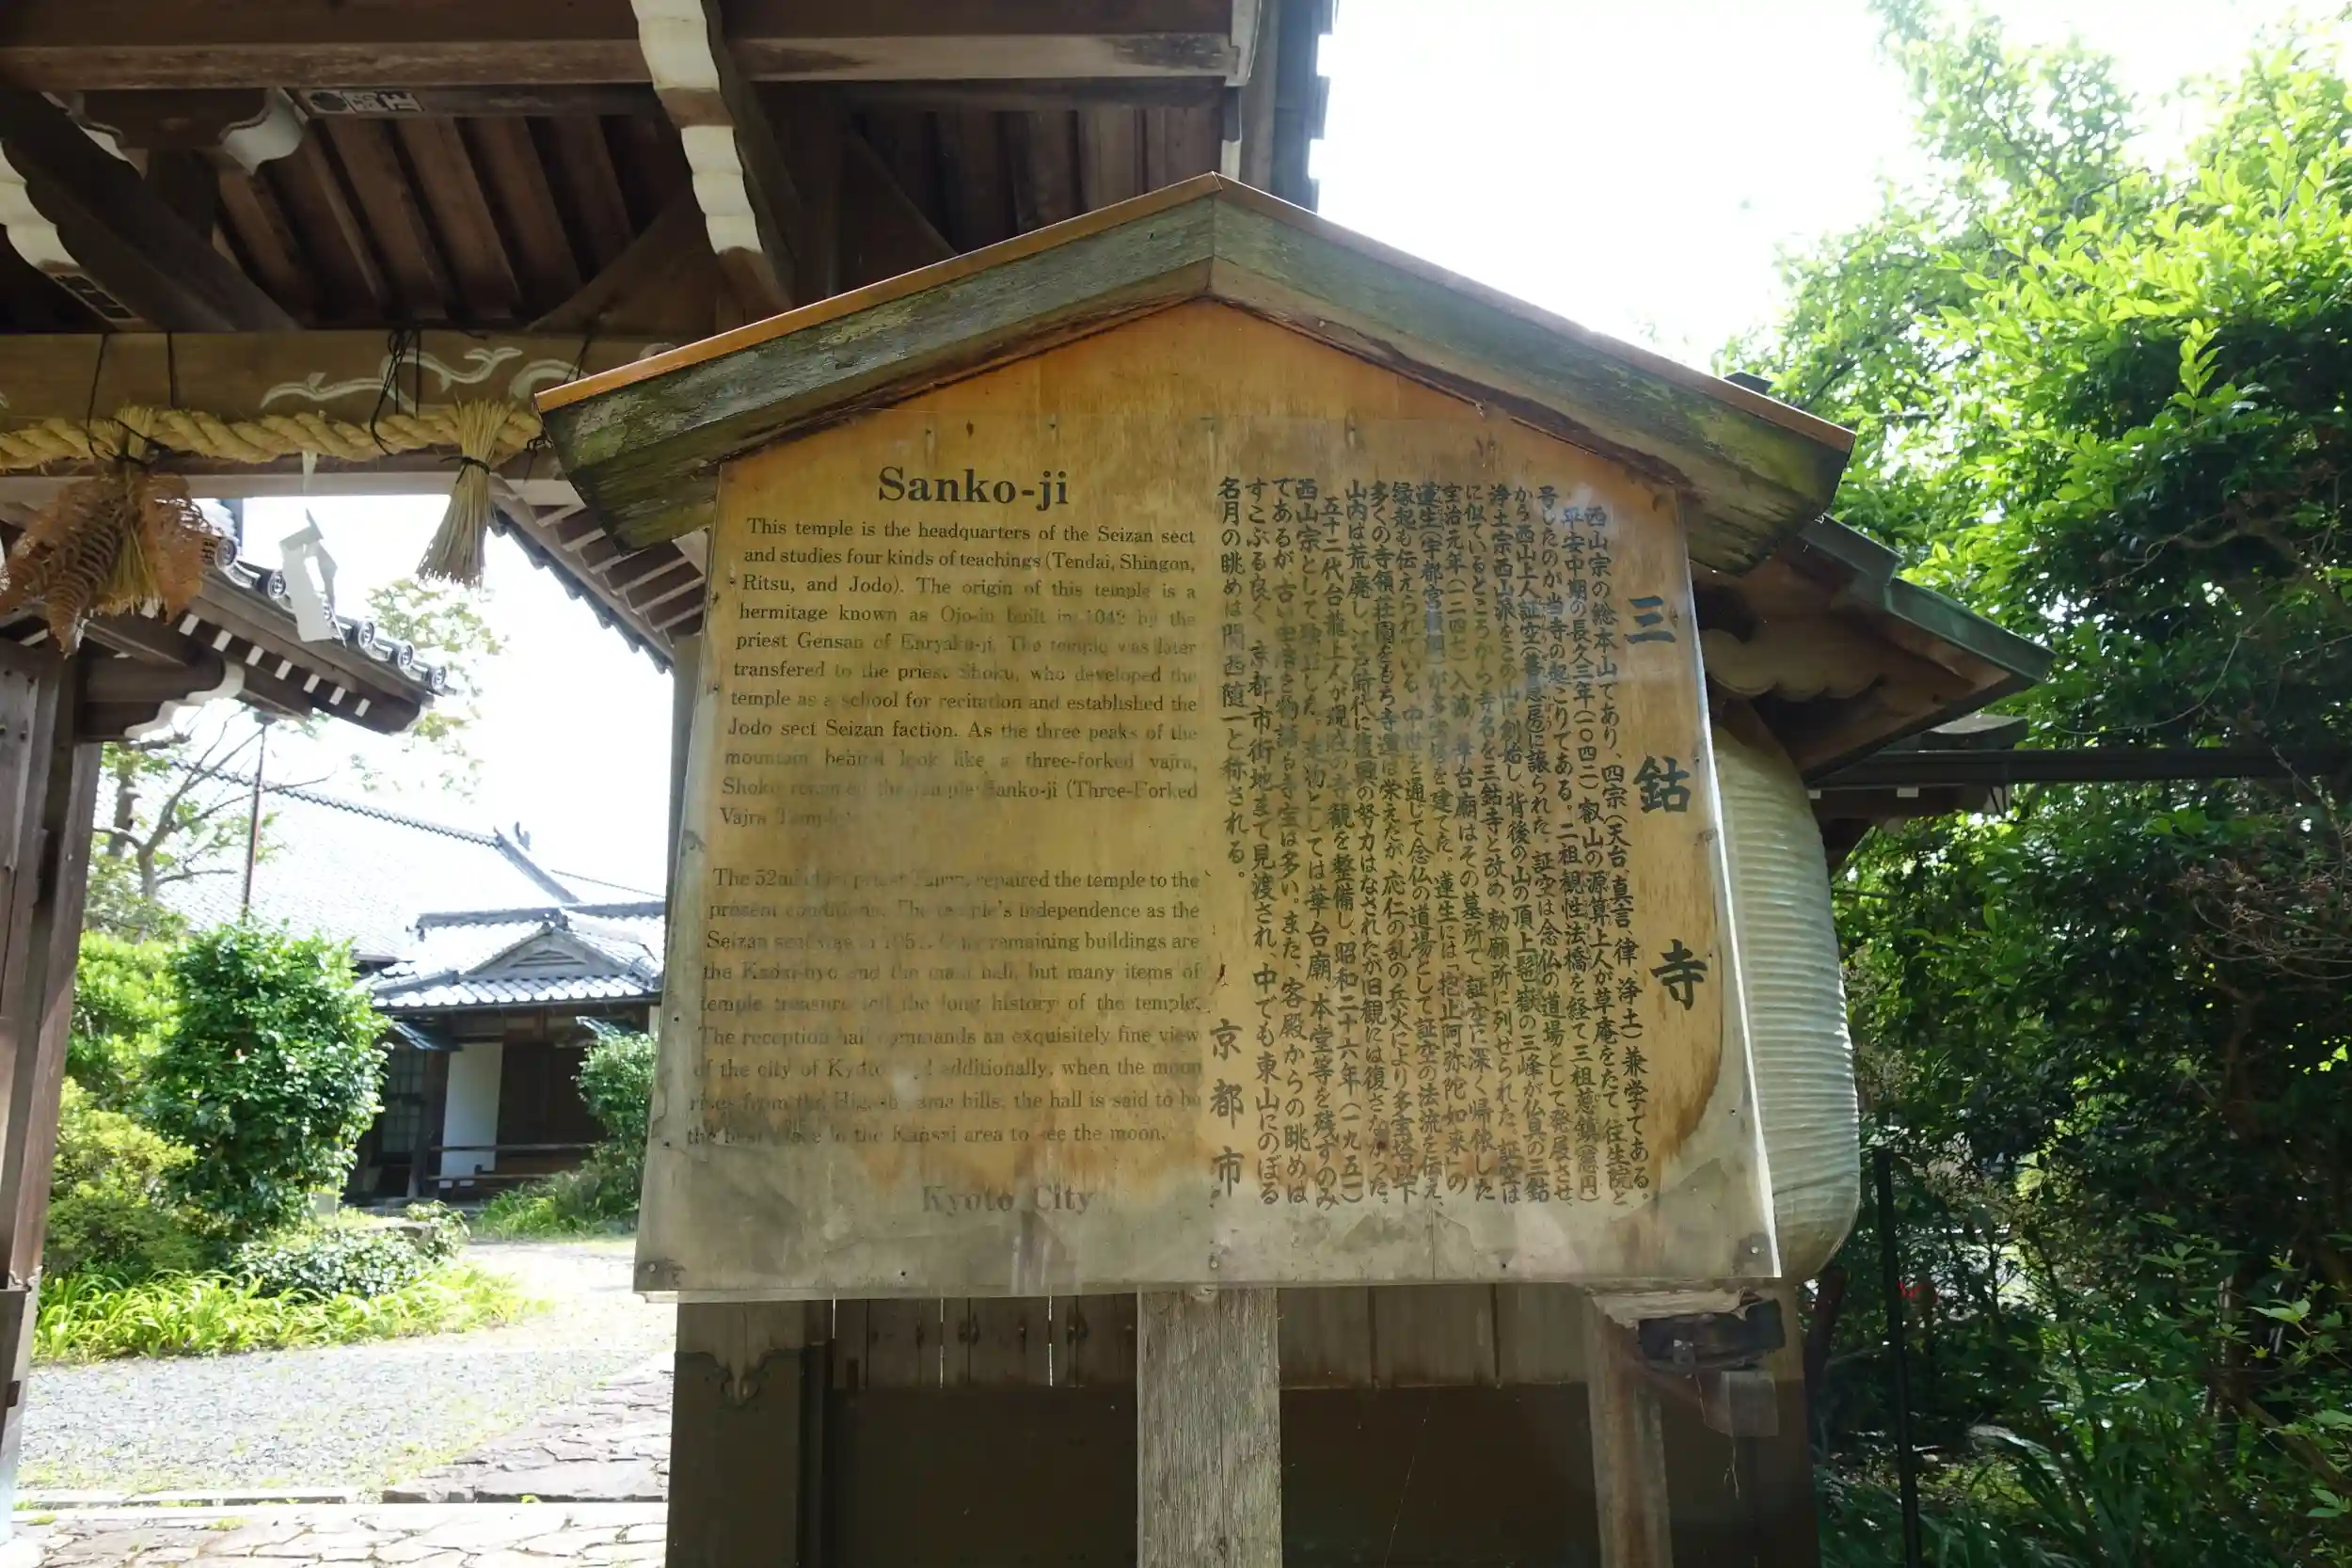 Sanko-ji
This temple is the headquarters of the Seizan sect
and studies four kinds of teachings (Tendai, Shingon,
Ritsu, and Jodo). The origin of this temple is a
hermitage known as Ojo-in built in 1042 by the
priest Gensan of Enryaku-ji. The temple was later
transfered to the priest Shoku, who developed the
temple as a school for recitation and established the
Jodo sect Seizan faction. As the three peaks of the
mountain behind look like a three-forked vajra,
Shoku renamed the temple Sanko-ji (Three-Forked
Vajra Temple).
The 52nd chief priest repaired the temple to the
present conditions. The temple's independence as the
Seizan sect was in 1951. remaining buildings are
the and the main hall, but many items of
temple treasure tell the long history of the temple.
The reception hall commands an exquisitely fine view
of the city of Kyoto and additionally, when the moon
rises from the Higashiyama hills, the hall is said to be
the best place in the Kansai area to see the moon.
Kyoto City
三鈷寺
西山宗の総本山であり、四宗(天台、真言、律、浄土)兼学である。
平安中期の長久三年(一〇四二)叡山の源算上人が草庵をたて、往生院と
号したのが当寺の起こりである。二祖観性法橋を経て三祖慈鎮(慈円)
から西山上人証空(善恵房)に譲られた。証空は念仏の道場として発展させ、
浄土宗西山派をこの山に創始し、背後の山の頂上嶽の三峰が仏具の三鈷
に似ているところから寺名を三鈷寺と改め、勅願所に列せられた。証空は
宝治元年(一二四七)入滅、華台廟はその墓所で、証空に深く帰依した
蓮生(宇都宮頼綱)が多宝塔を建てた。蓮生には「抱止阿弥陀如来」の
縁起も伝えられている。中世を通じて念仏の道場として証空の法流を伝え、
多くの寺領荘園をもち寺運は栄えたが、応仁の乱の兵火により多宝塔以下
山内は荒廃し、江戸時代に復興の努力はなされたが旧観には復さなかった。
五十二代台龍上人が現在の寺観を整備し、昭和二十六年(一九五一)
西山宗として独立した。建物としては華台廟、本堂等を残すのみ
であるが、古い歴史を物語る寺宝は多い。また、客殿からの眺めは
すこぶる良く、京都市街地まで見渡され、中でも東山にのぼる
名月の眺めは関西随一と称される。
京都市